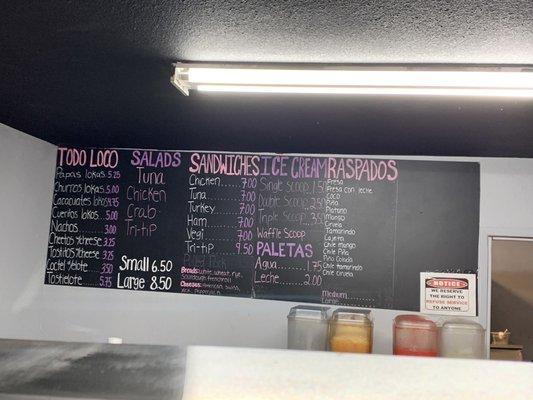 TODO LOCO
Papas lokas 5.25
Churros lokas 5.00
Cacahuates lokos 4.75
Cueritos lokos 5.00
Nachos 3.00
Cheetos w/cheese 3.25
Tostitos w/cheese 3.25
Coctel w/elote 3.50
Tostielote 5.75
SALADS
Tuna
Chicken
Crab
Tri-tip
Small 6.50
Large 8.50
SANDWICHES
Chicken 7.00
Tuna 7.00
Turkey 7.00
Ham 7.00
Vegi 7.00
Tri-tip 9.50
Breads: white, wheat, rye
Sourdough, french roll
Cheeses: American, Swiss,
Jack, Provolone
ICE CREAM
Single Scoop 1.50
Double Scoop 2.50
Triple Scoop 3.50
Waffle Scoop
PALETAS
Agua 1.75
Leche 2.00
RASPADOS
Fresa
Fresa con leche
Coco
Piña
Platano
Mango
Ciruela
Tamarindo
Cajeta
Chile mango
Chile Piña
Piña Colada
Chile tamarindo
Chile ciruela
Medium
NOTICE
WE RESERVE
THE RIGHT TO
REFUSE SERVICE
TO ANYONE